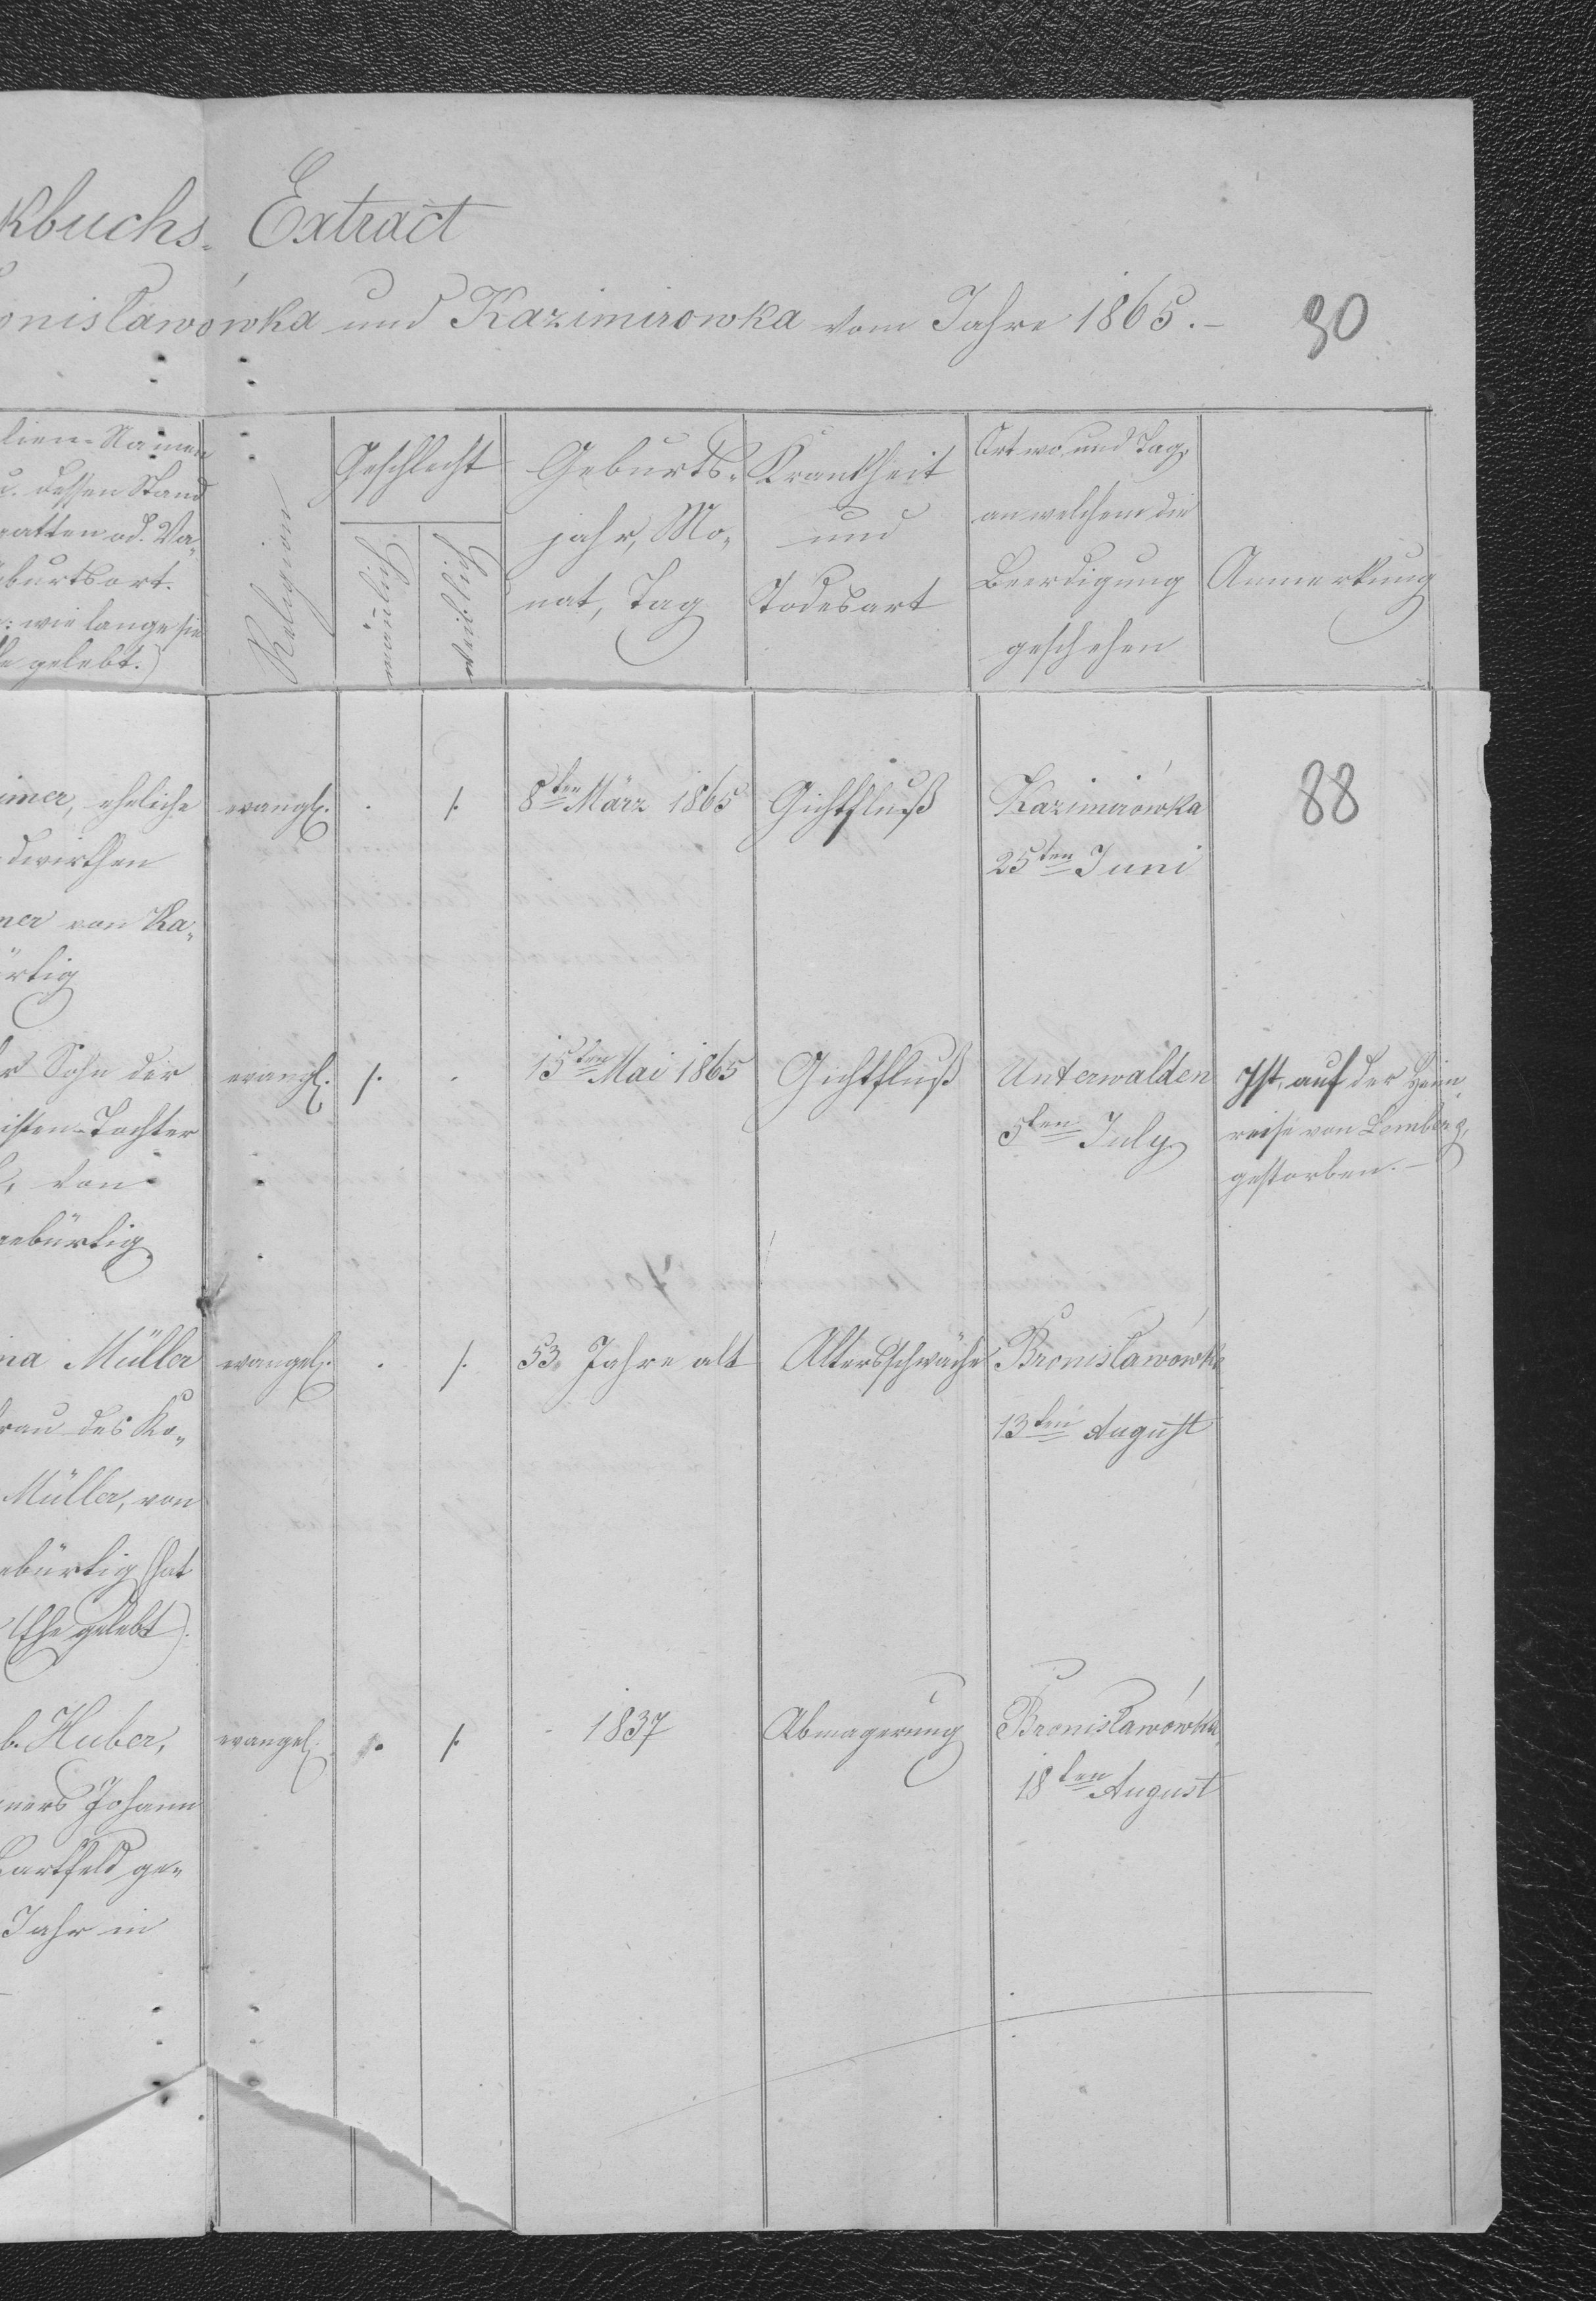 kbuchs- Extract
onisławówka und Kazimirowka vom Jahre 1865.-
90
lien-Namen
u. dessen Stand
gatten od. Va-
burtsort.
: wie lange sie
gelebt.)
Religion
Geschlecht
mänlich
weiblich
Geburts-
jahr, Mo-
nat, Tag
Krankheit
und
Todesart
Ort wo und Tag,
an welchem die
Beerdigung
geschehen
Anmerkung
imer, eheliche
dwirthen
mer von Ka-
ürtig
evangl. . /. 8ten März 1865 Gichtfluß
Kazimirówka
25ten Juni
88
r Sohn der
isten-Tochter
, von
gebürtig
evangl. /. . 15ten Mai 1865 Gichtfluß
Unterwalden
5ten July
Ist auf der Heim-
reise von Lemberg,
gestorben.-
na Müller
rau des Ko-
Müller, von
ebürtig (hat
Ehe gelebt).
evangel. . /. 53. Jahre alt Altersschwäche
Bronisławówka
13ten August
b. Huber,
ners Johann
artfeld ge-
Jahr in
evangel. . /. 1837 Abmagerung
Bronisławówka
18ten August